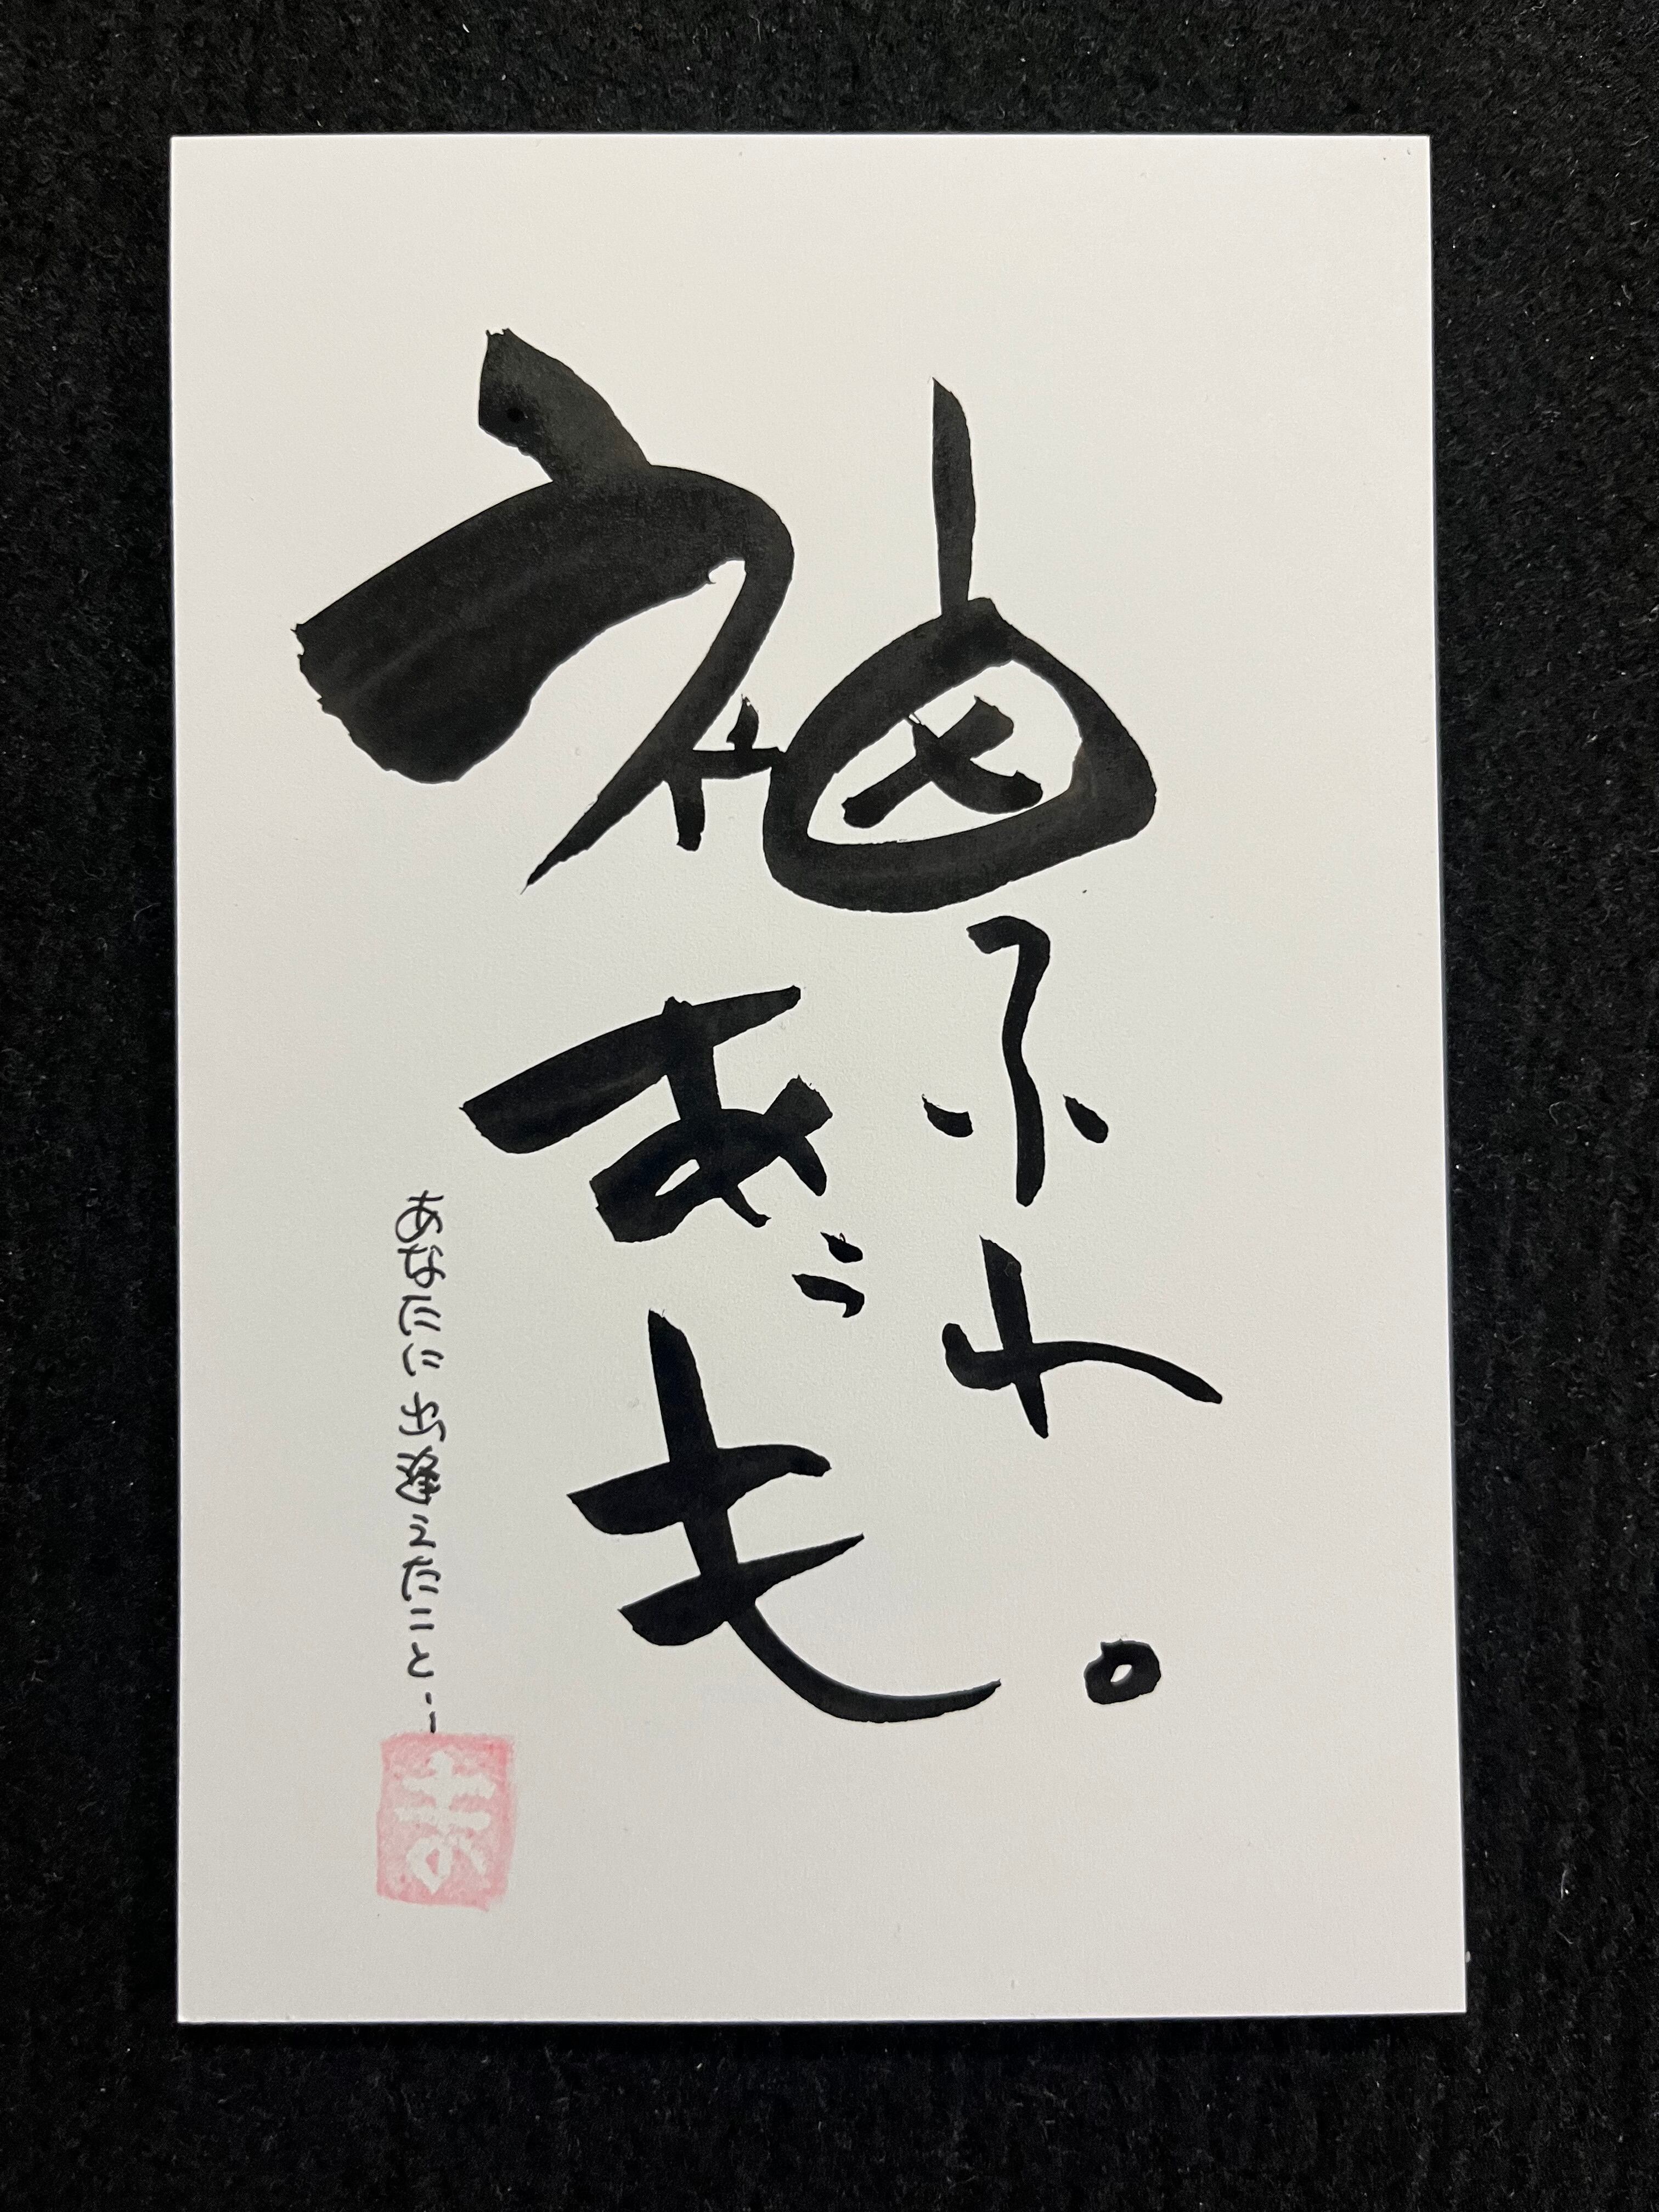 袖ふれ
あうも。
あなたに出逢えたこと…